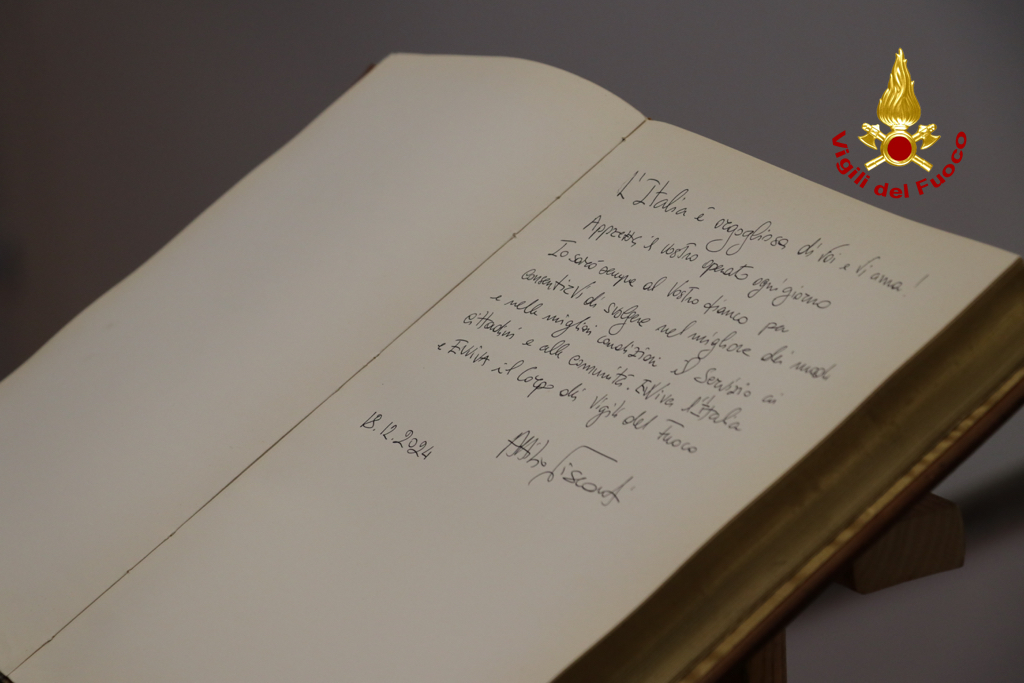 L'Italia é orgogliosa di Voi e Vi ama!
Apprezza il vostro operato ogni giorno
Io sarò sempre al Vostro fianco per
consentirVi di svolgere nel migliore dei modi
e nelle migliori condizioni il Servizio ai
cittadini e alla comunità. EVViva l'Italia
e EVViVA il Corpo dei Vigili del Fuoco
18.12.2024
Attilio Visconti
Vigili del Fuoco